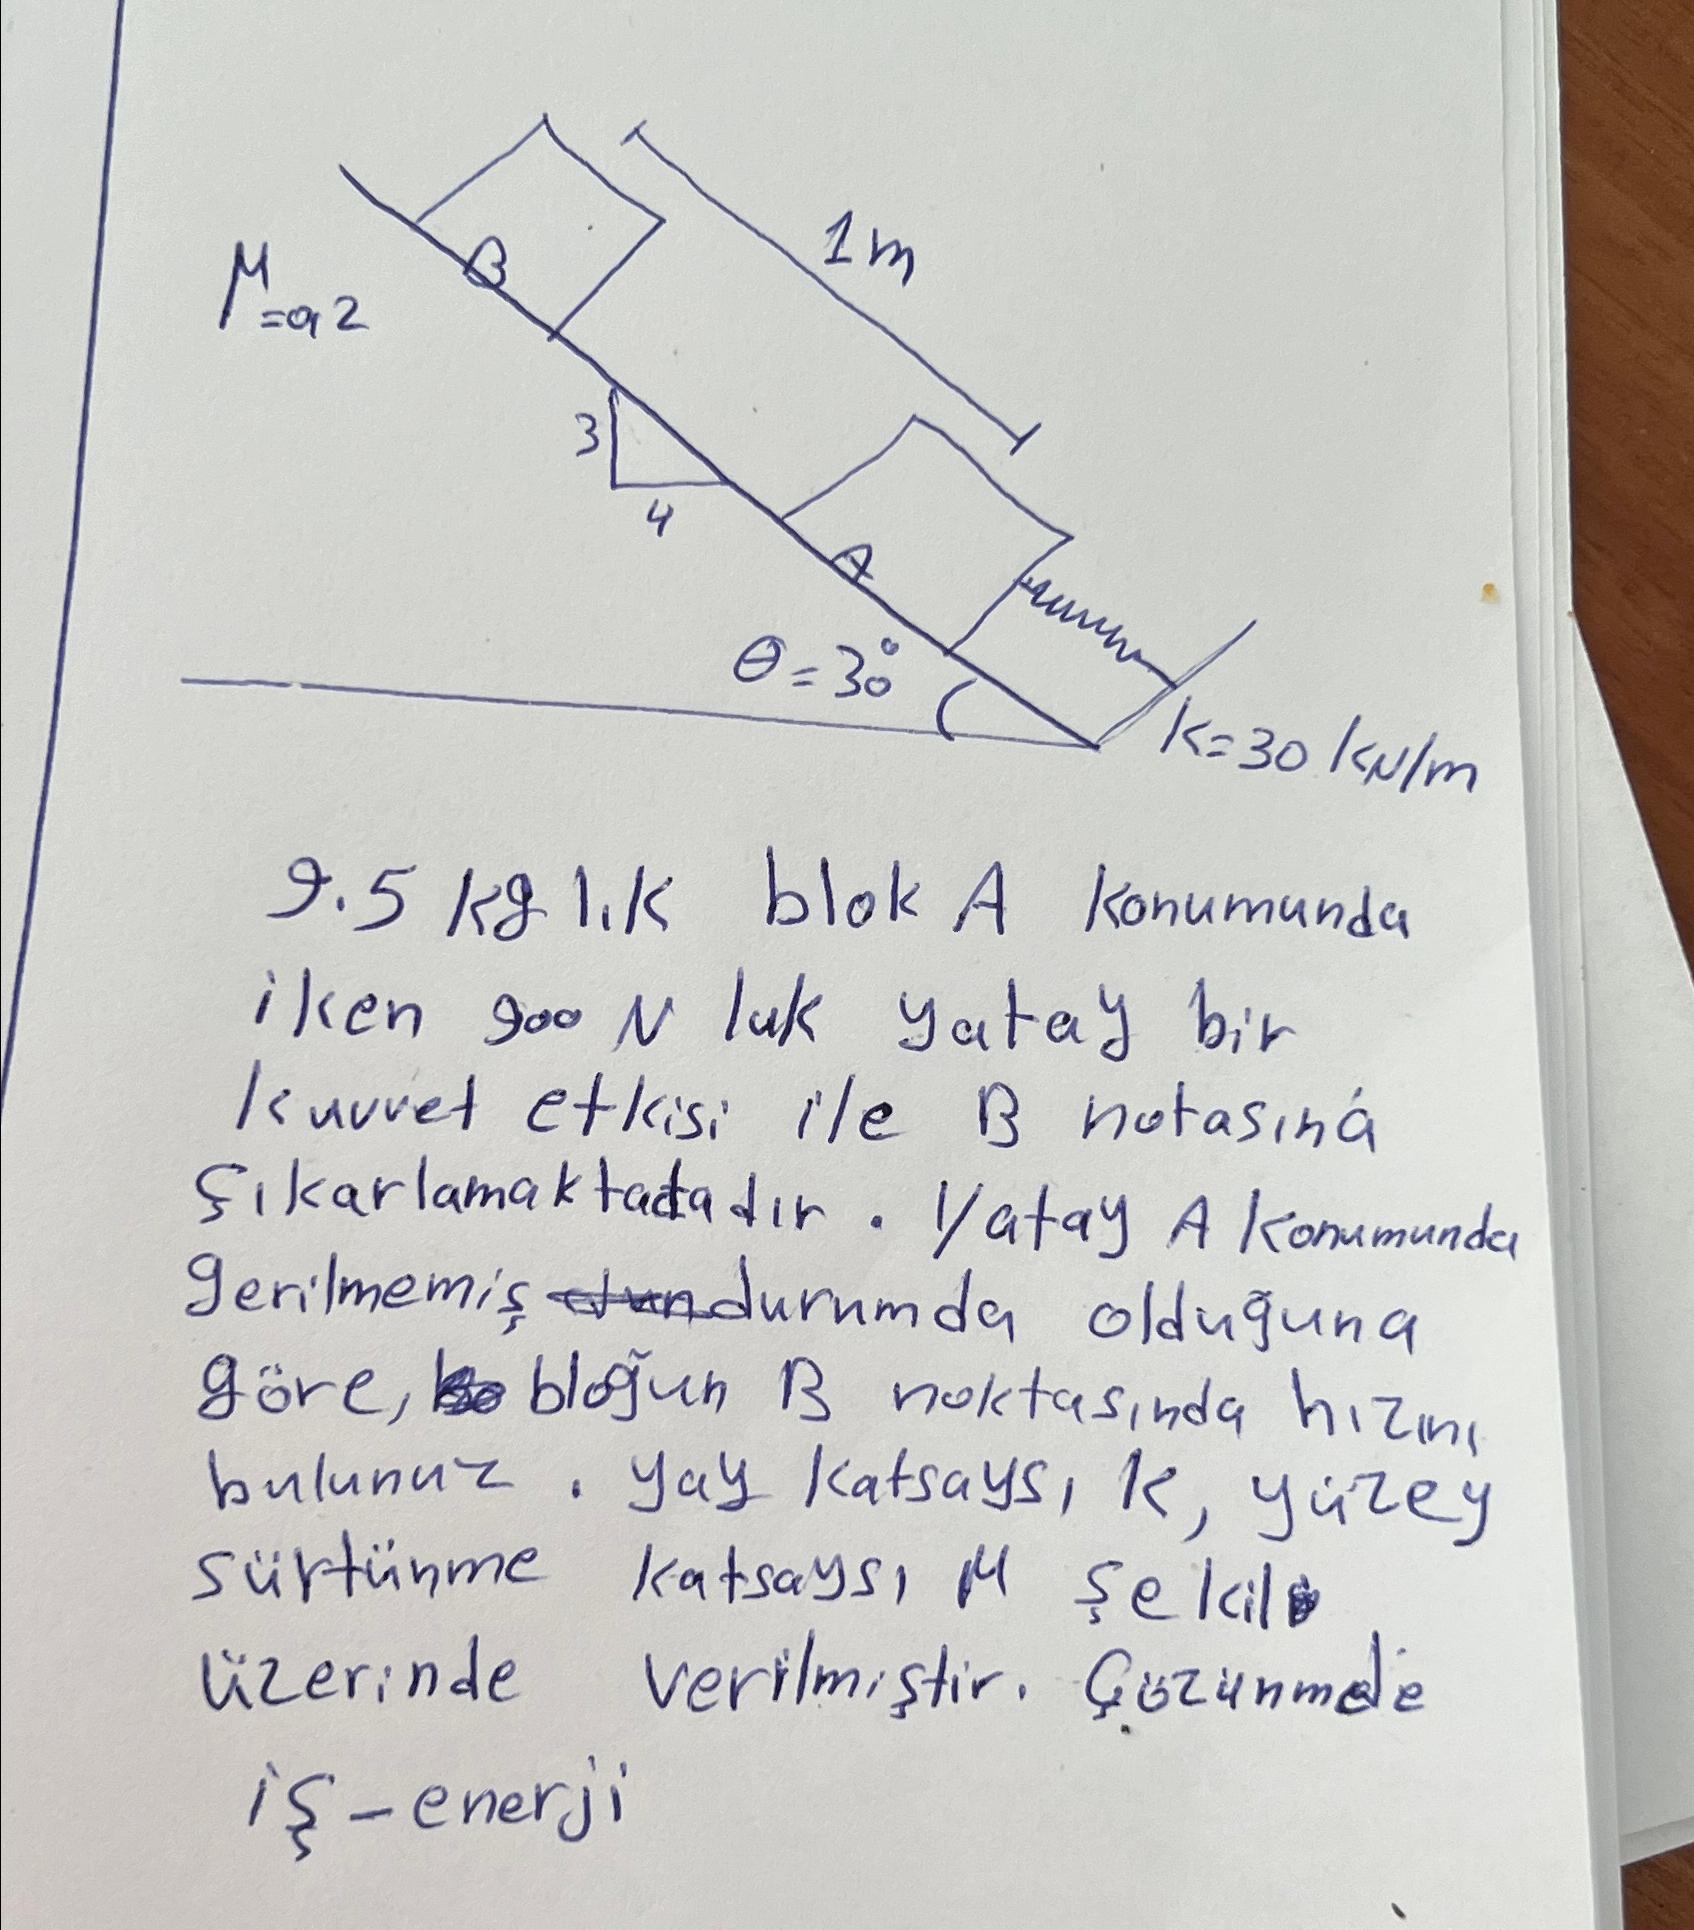 1m
B
μ=0,2
3
4
A
θ=30°
k=30 kN/m
9.5 kg lık blok A konumunda
iken 900 N luk yatay bir
kuvvet etkisi ile B notasına
çıkarlamaktadadır. Yatay A konumunda
gerilmemiş durumda olduğuna
göre, bloğun B noktasında hızını
bulunuz. yay katsaysı k, yüzey
sürtünme katsaysı μ şekil
üzerinde verilmiştir. Çözünmede
iş-enerji